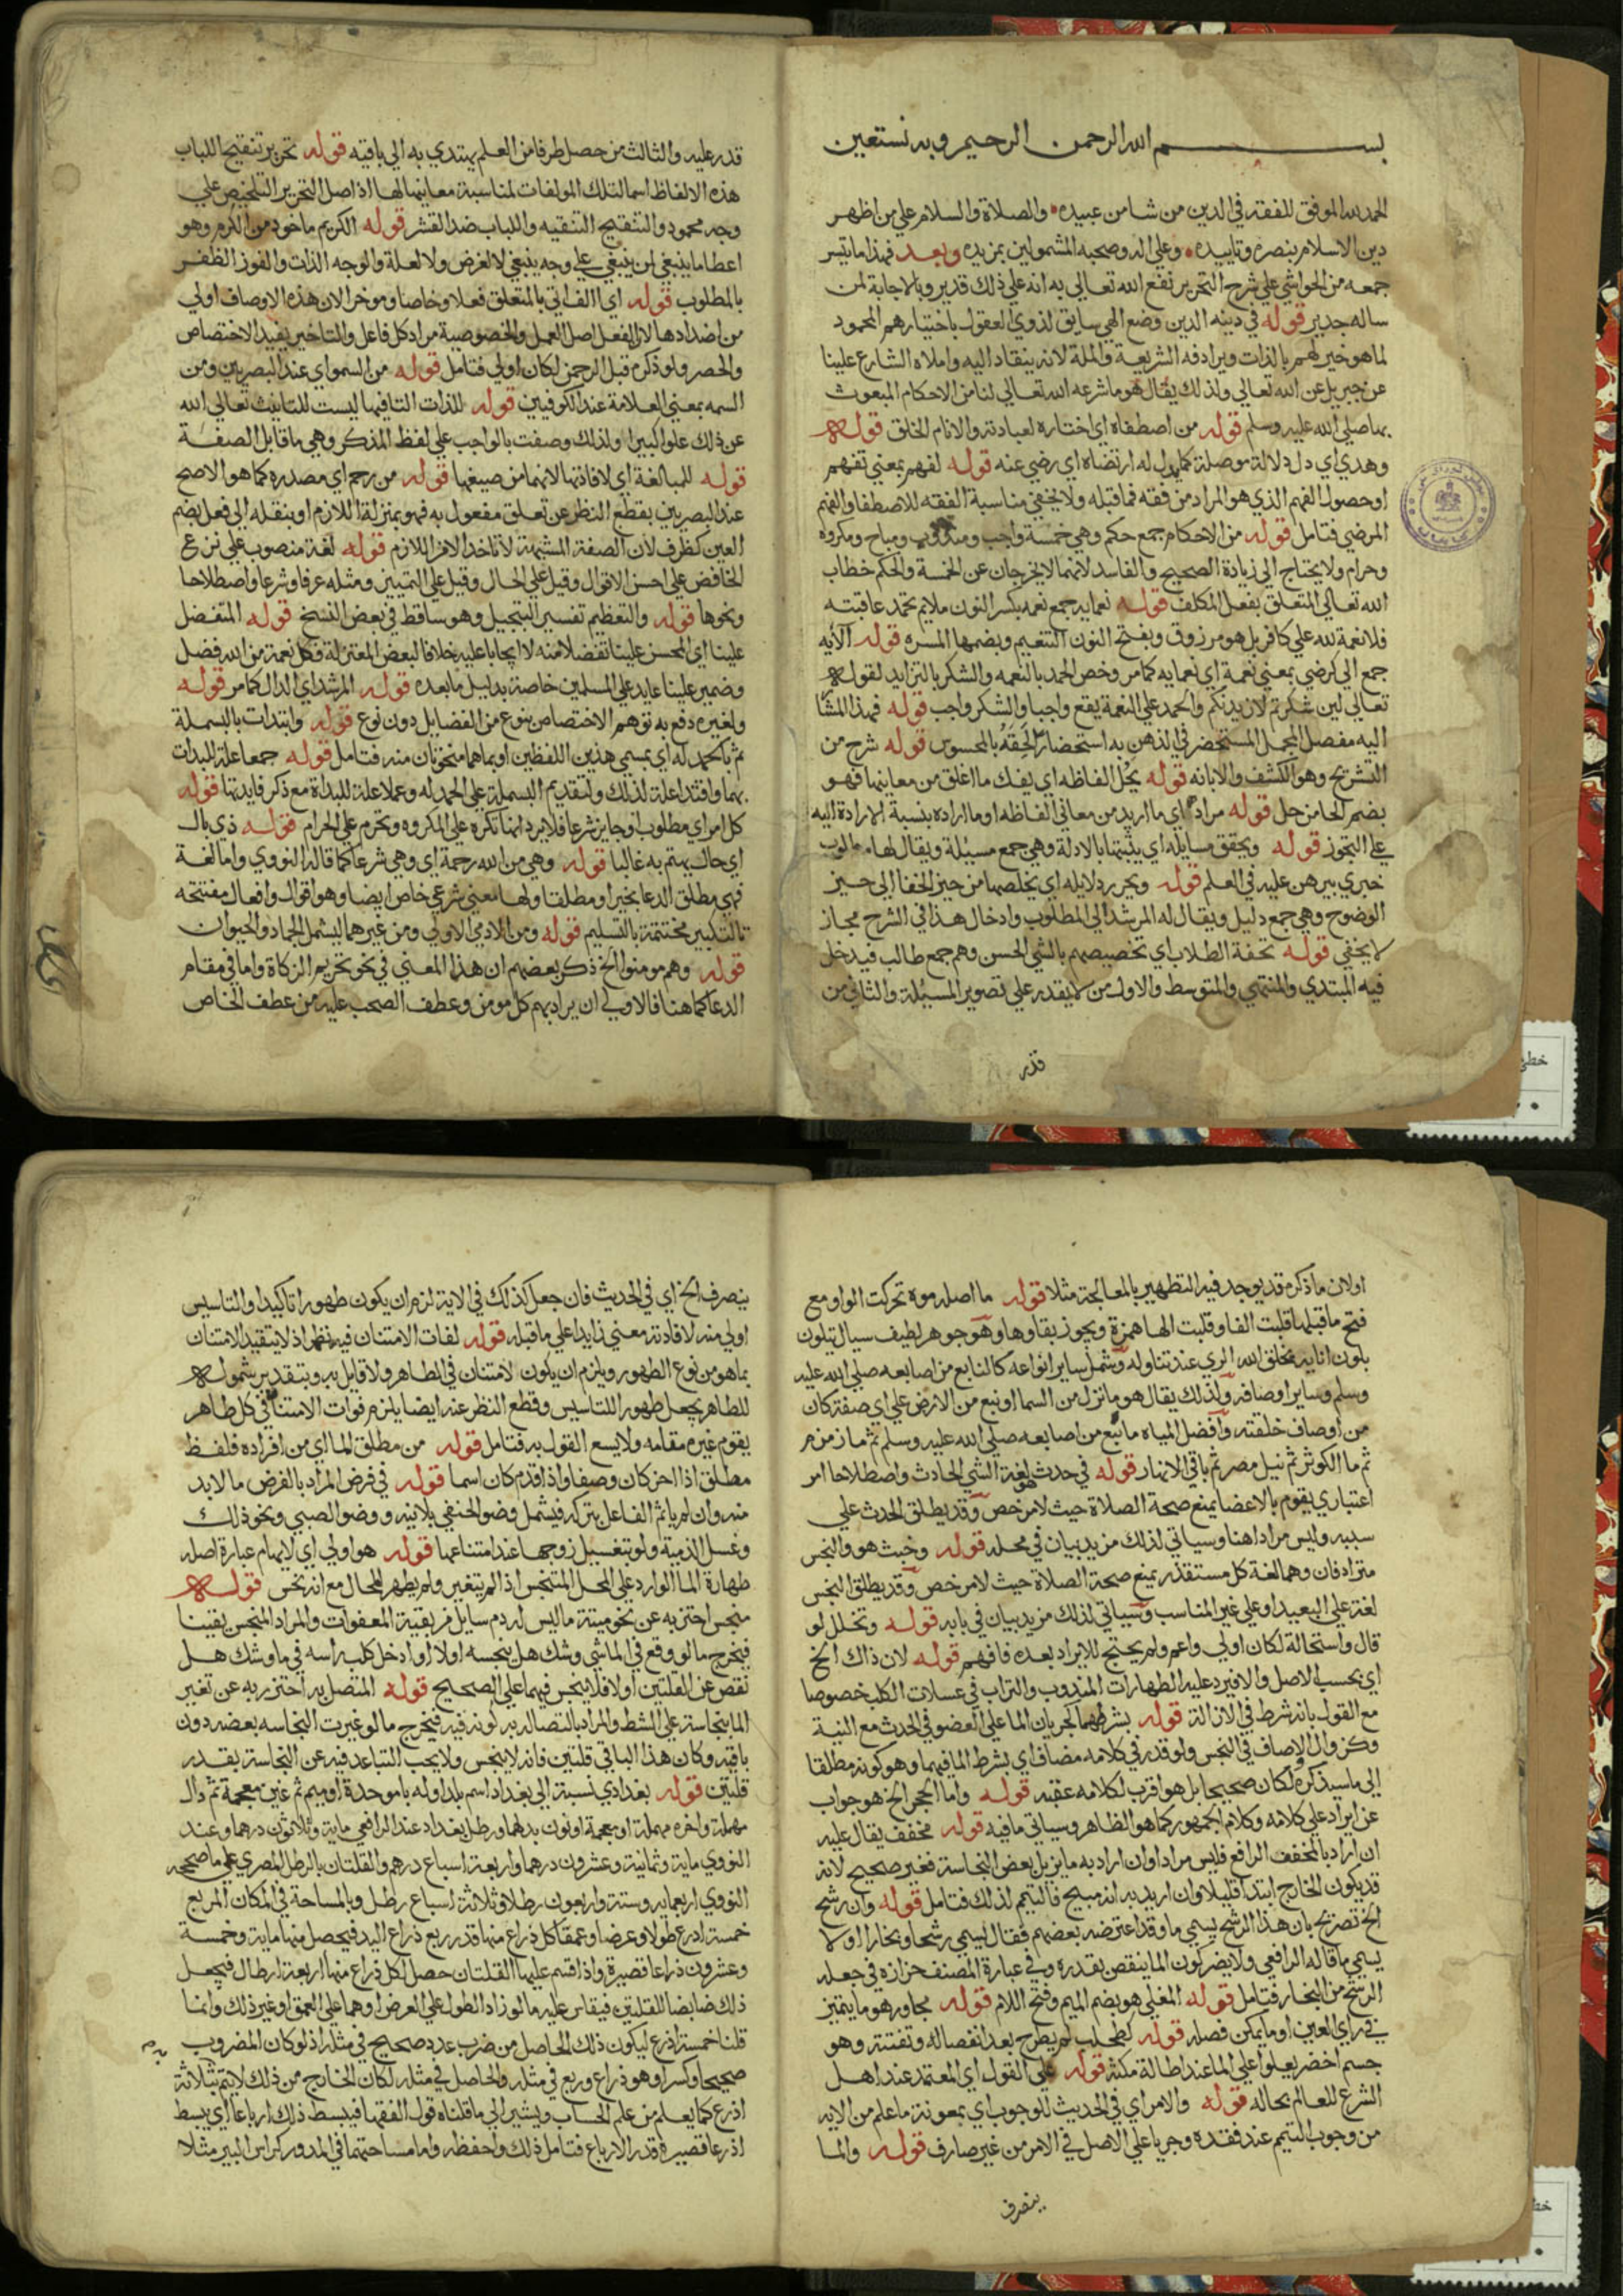 بسم الله الرحمن الرحيم وبه نستعين
الحمد لله الموفق للفقه في الدين من شا من عبيده والصلاة والسلام علي من اظهر
دين الاسلام بنصره وتاييده وعلي اله وصحبه المشمولين بمزيده وبعد فهذا ما تيسر
جمعه من الحواشي علي شرح التحرير نفع الله تعالي به انه علي ذلك قدير وبالاجابة لمن
ساله جدير قوله في دينه الدين وضع الهي سايق لذوي العقول باختيارهم المحمود
لما هو خير لهم بالذات ويرادفه الشريعة والملة لانه ينقاد اليه واملاه الشارع علينا
عن جبريل عن الله تعالي ولذلك يقال هو ما شرعه الله تعالي لنا من الاحكام المبعوث
بها صلي الله عليه وسلم قوله من اصطفاه اي اختاره لعبادته والانام الخلق قوله
وهدي اي دل دلالة موصلة كما يدل له ارتضاه اي رضي عنه قوله لفهم بمعني تفهم
او حصول الفهم الذي هو المراد من فقه فما قبله ولا يخفي مناسبة الفقه للاصطفا والفهم
المرضي فتامل قوله من الاحكام جمع حكم وهي خمسة واجب ومندوب ومباح ومكروه
وحرام ولا يحتاج الي زيادة الصحيح والفاسد لانهما لا يخرجان عن الخمسة والحكم خطاب
الله تعالي المتعلق بفعل المكلف قوله نعمايه جمع نعمه بكسر النون ملايم تحمد عاقبته
فلا نعمة لله علي كافر بل هو مرزوق وبفتح النون التنعيم وبضمها المسره قوله الايه
جمع الي كرضي بمعني نعمة اي نعمايه كما مر وخص الحمد بالنعمه والشكر بالتزايد لقوله
تعالي لين شكرتم لازيدنكم والحمد علي النعمة يقع واجبا والشكر واجب قوله فهذا المشا
اليه مفصل المجمل المستحضر في الذهن به استحضارا لحقه بالمحسوس قوله شرح من
التشريح وهو الكشف والابانه قوله يحل الفاظه اي يفك ما اغلق من معانيها فهو
بضم الحا من حل قوله مراده اي ما اريد من معاني الفاظه او ما اراده بنسبة الارادة اليه
علي التجوز قوله ويحقق مسايله اي يثبتها بالادلة وهي جمع مسيلة ويقال لها مطلوب
خبري يبرهن عليه في العلم قوله ويحرر دلايله اي يخلصها من حيز الخفا الي حيز
الوضوح وهي جمع دليل ويقال له المرشد الي المطلوب وادخال هذا في الشرح مجاز
لا يخفي قوله تحفة الطلاب اي تخصيصهم بالشي الحسن وهم جمع طالب فيدخل
فيه المبتدي والمنتهي والمتوسط والاول من لا يقدر علي تصوير المسيلة والثاني من
قدر
قدر عليه والثالث من حصل طرفا من العلم يهتدي به الي باقيه قوله تحرير تنقيح اللباب
هذه الالفاظ اسما لتلك المولفات لمناسبة معانيها لها اذ اصل التحرير التلخيص علي
وجه محمود والتنقيح التنقيه واللباب ضد القشر قوله الكريم ماخوذ من الكرم وهو
اعطا ما ينبغي لمن ينبغي علي وجه ينبغي لا لغرض ولا لعلة والوجه الذات والفوز الظفر
بالمطلوب قوله اي االف اتي بالمتعلق فعلا وخاصا وموخرا لان هذه الاوصاف اولي
من اضدادها لان الفعل اصل العمل والخصوصية مراد كل فاعل والتاخير يفيد الاختصاص
والحصر ولو ذكره قبل الرحمن لكان اولي فتامل قوله من السمو اي عند البصريين ومن
السمه بمعني العلامة عند الكوفيين قوله للذات التا فيها ليست للتانيث تعالي الله
عن ذلك علوا كبيرا ولذلك وصفت بالواجب علي لفظ المذكر وهي ما قابل الصفة
قوله للمبالغة اي لافادتها لانهما من صيغها قوله من رحم اي مصدره كما هو الاصح
عند البصريين بقطع النظر عن تعلق مفعول به فهو بمنزلة اللازم او بنقله الي فعل بضم
العين كظرف لان الصفة المشبهة لا تاخذ الا من اللازم قوله لغة منصوب علي نزع
الخافض علي احسن الاقوال وقيل علي الحال وقيل علي التمييز ومثله عرفا وشرعا واصطلاحا
ونحوها قوله والتعظيم تفسير للتبجيل وهو ساقط في بعض النسخ قوله المتفضل
علينا اي المحسن علينا تفضلا منه لا ايجابا عليه خلافا لبعض المعتزلة فكل نعمة من الله فضل
وضمير علينا عايد علي المسلمين خاصة بدليل ما بعده قوله المرشد اي الدال كما مر قوله
ولغيره دفع به توهم الاختصاص بنوع من الفضايل دون نوع قوله وابتدات بالبسملة
ثم بالحمد له اي بمسمي هذين اللفظين او بما هما منحوتان منه فتامل قوله جمعا علة للبدات
بهما واقتدا علة لذلك ولتقديم البسملة علي الحمد له وعملا علة للبداة مع ذكر فايدتها قوله
كل امر اي مطلوب او جايز شرعا فلا يرد انها تكره علي المكروه وتحرم علي الحرام قوله ذي بال
اي حال يهتم به غالبا قوله وهي من الله رحمة اي وهي شرعا كما قاله النووي واما لغة
فهي مطلق الدعا بخير او مطلقا ولها معني شرعي خاص ايضا وهو اقوال وافعال مفتتحه
بالتكبير مختتمة بالتسليم قوله ومن الادمي الاولي ومن غيرهما ليشمل الجماد والحيوان
قوله وهم مومنوا الخ ذكر بعضهم ان هذا المعني في نحو تحريم الزكاة واما في مقام
الدعا كما هنا فالاولي ان يراد بهم كل مومن وعطف الصحب عليه من عطف الخاص
اولان ما ذكره قد يوجد فيه التطهير بالمعالجة مثلا قوله ما اصله موه تحركت الواو مع
فتح ما قبلها قلبت الفا وقلبت الها همزة ويجوز بقاوها وهو جوهر لطيف سيال يتلون
بلون انايه يخلق الله الري عند تناوله وشمل ساير انواعه كالنابع من اصابعه صلي الله عليه
وسلم وساير اوصافه ولذلك يقال هو ما نزل من السما او نبع من الارض علي اي صفة كان
من اوصاف خلقته وافضل المياه ما نبع من اصابعه صلي الله عليه وسلم ثم ما زمزم
ثم ما الكوثر ثم نيل مصر ثم باقي الانهار قوله في حدث هو لغة الشي الحادث واصطلاحا امر
اعتباري يقوم بالاعضا يمنع صحة الصلاة حيث لا مرخص وقد يطلق الحدث علي
سببه وليس مرادا هنا وسياتي لذلك مزيد بيان في محله قوله وخبث هو والنجس
مترادفان وهما لغة كل مستقذر يمنع صحة الصلاة حيث لا مرخص وقد يطلق النجس
لغة علي البعيد او علي غير المناسب وسياتي لذلك مزيد بيان في بابه قوله وتخلل لو
قال واستحالة لكان اولي واعم ولم يحتج للايراد بعده فافهم قوله لان ذاك الخ
اي بحسب الاصل والا فيرد عليه الطهارات المندوب والتراب في غسلات الكلب خصوصا
مع القول بانه شرط في الازالة قوله بشرطهما كجريان الما علي العضو في الحدث مع النية
وكزوال الاوصاف في النجس ولو قدر في كلامه مضاف اي بشرط الما فيهما وهو كونه مطلقا
الي ما سيذكره لكان صحيحا بل هو اقرب لكلامه عقبه قوله واما الحجر الخ هو جواب
عن ايراد علي كلامه وكلام الجمهور كما هو الظاهر وسياتي ما فيه قوله مخفف يقال عليه
ان اراد بالمخفف الرافع فليس مرادا وان اراد به ما يزيل بعض النجاسة فغير صحيح لانه
قد يكون الخارج ابتدا قليلا وان اريد به انه مبيح فالتيمم لذلك فتامل قوله وان رشح
الخ تصريح بان هذا الرشح يسمي ما وقد اعترضه بعضهم فقال يسمي رشحا وبخارا ولا
يسمي ما قاله الرافعي ولا يضر كون الما ينقص بقدره وفي عبارة المصنف حزازه في جعله
الرشح من البخار فتامل قوله المغلي هو بضم الميم وفتح اللام قوله مجاور هو ما يتميز
في راي العين او ما يمكن فصله قوله كطحلب لم يطرح بعد انفصاله وتفتته وهو
جسم اخضر يعلوا علي الما عند اطالة مكثه قوله علي القول اي المعتمد عند اهل
الشرع للعالم بحاله قوله والامر اي في الحديث للوجوب اي بمعونة ما علم من الايه
من وجوب التيمم عند فقده وجريا علي الاصل في الامر من غير صارف قوله والما
ينصرف
ينصرف الخ اي في الحديث فان جعل كذلك في الاية لزم ان يكون طهورا تاكيدا والتاسيس
اولي منه لافادته معني زايدا علي ما قبله قوله لفات الامتنان فيه نظر اذ لا يتقيد الامتنان
بما هو من نوع الطهور ويلزم ان يكون لامتنان في الطاهر ولا قايل به وبتقدير شموله
للطاهر يجعل طهورا للتاسيس وقطع النظر عنه ايضا يلزم فوات الامتنان في كل طاهر
يقوم غيره مقامه ولا يسع القول به فتامل قوله من مطلق الما اي من افراده فلفظ
مطلق اذا اخر كان وصفا واذا قدم كان اسما قوله في فرض المراد بالفرض ما لا بد
منه وان لم ياثم الفاعل بتركه فيشمل وضو الحنفي بلا نيه ووضو الصبي ونحو ذلك
وغسل الذمية ولو بتغسيل زوجها عند امتناعها قوله هو اولي اي لايهام عبارة اصله
طهارة الما الوارد علي المحل المتنجس اذا لم يتغير ولم يطهر المحال مع انه نجس قوله
منجس احترز به عن نحو ميتة ما ليس له دم سايل من بقية المعفوات والمراد المنجس يقينا
فيخرج ما لو وقع في الما شي وشك هل ينجسه اولا او ادخل كلب راسه في ما وشك هل
نقص عن القلتين اولا فلا ينجس فيهما علي الصحيح قوله المتصل به احترز به عن تغير
الما بنجاسة علي الشط والمراد بالتصاله به كونه فيه فيخرج ما لو غيرت النجاسه بعضه دون
باقيه وكان هذا الباقي قلتين فانه لا ينجس ولا يجب التباعد فيه عن النجاسة بقدر
قلتين قوله بغدادي نسبة الي بغداد اسم بلد اوله با موحدة او ميم ثم غين معجمة ثم دال
مهملة واخره مهملة او معجمة او نون بدلها ورطل بغداد عند الرافعي ماية وثلاثون درهما وعند
النووي ماية وثمانية وعشرون درهما واربعة اسباع درهم والقلتان بالرطل المصري علي ما صححه
النووي اربعمايه وستة واربعون رطلا وثلاثة اسباع رطل وبالمساحة في المكان المربع
خمسة اذرع طولا وعرضا وعمقا كل ذراع منها قدر ربع ذراع اليد فيحصل منها ماية وخمسة
وعشرون ذراعا قصيرة واذا قسم عليها القلتان حصل لكل ذراع منها اربعة ارطال فيجعل
ذلك ضابطا للقلتين فيقاس عليه ما لو زاد الطول علي العرض او هما علي العمق او غير ذلك وانما
قلنا خمسة اذرع ليكون ذلك الحاصل من ضرب عدد صحيح في مثله اذ لو كان المضروب
صحيحا وكسرا وهو ذراع وربع في مثله والحاصل في مثله لكان الخارج من ذلك لا يتم بثلاثة
اذرع كما يعلم من علم الحساب ويشير الي ما قلناه قول الفقها فيبسط ذلك ارباعا اي يبسط
اذرعا قصيرة قدر الارباع فتامل ذلك واحفظه واما مساحتها في المدور كراس البير مثلا